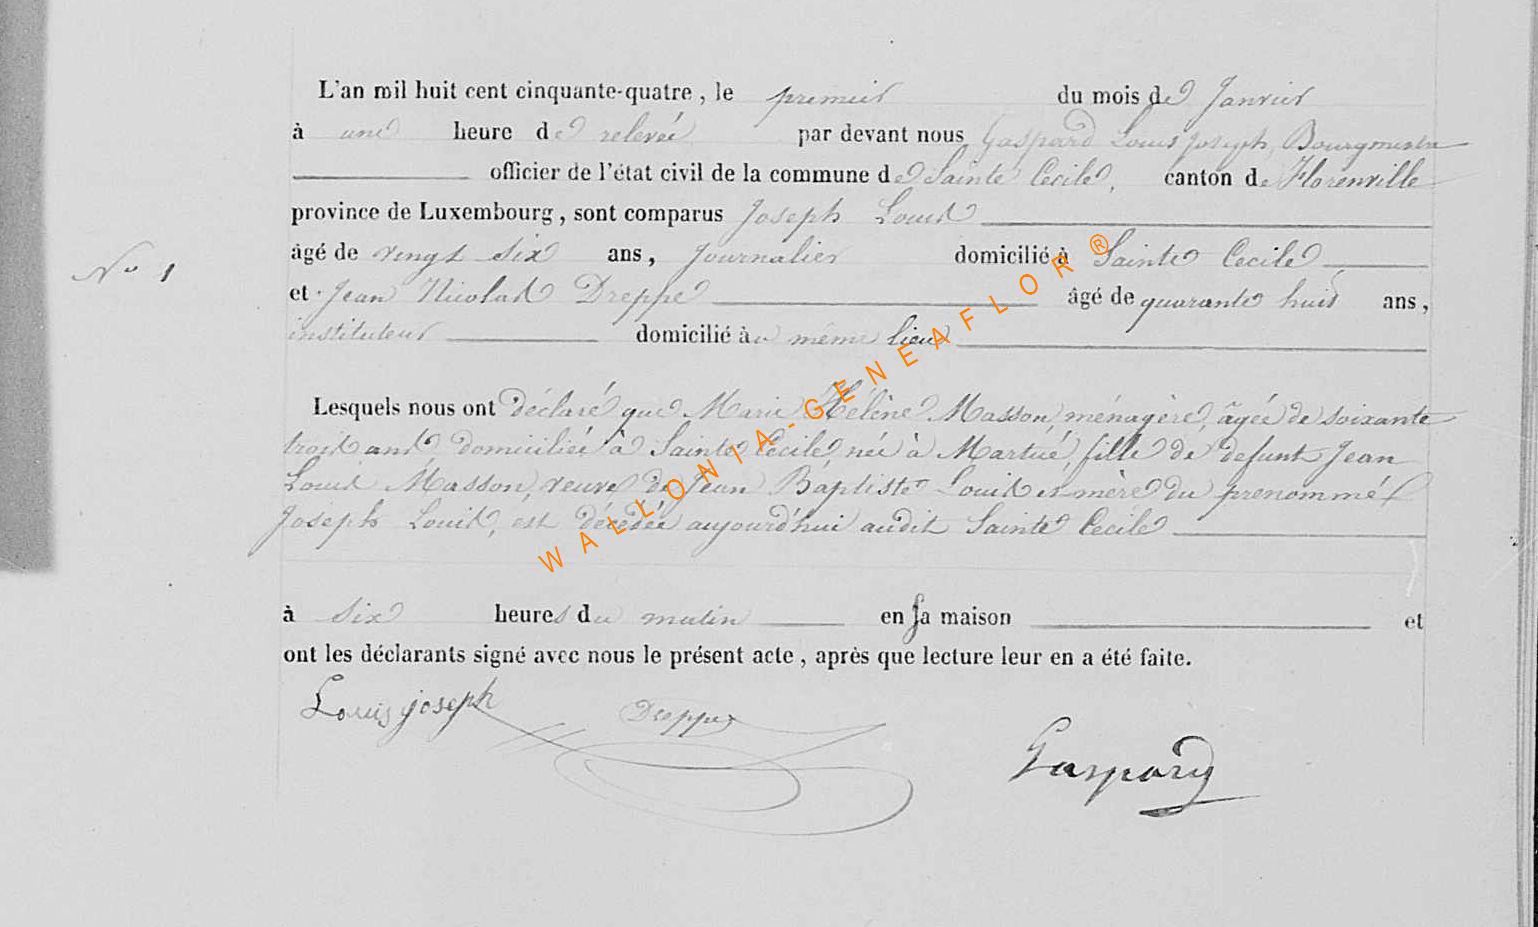 L'an mil huit cent cinquante-quatre, le premier du mois de Janvier
à une heure de relevée par devant nous Gaspard Louis Joseph, Bourgmestre
officier de l'état civil de la commune de Sainte Cecile, canton de Florenville
province de Luxembourg, sont comparus Joseph Louis
âgé de vingt six ans, Journalier domicilié à Sainte Cecile
N° 1
et Jean Nicolas Dreppe âgé de quarante huit ans,
instituteur domicilié au même lieu
Lesquels nous ont déclaré que Marie Hélène Masson, ménagère, âgée de soixante
trois ans, domiciliée à Sainte Cecile, née à Martué, fille de defunt Jean
Louis Masson, veuve de Jean Baptiste Louis et mère du prenommé
Joseph Louis, est décédée aujourd'hui audit Sainte Cecile
à six heures du matin en sa maison et
ont les déclarants signé avec nous le présent acte, après que lecture leur en a été faite.
Louis joseph Dreppe
Gaspard
WALLONIA-GENEAFLOR®